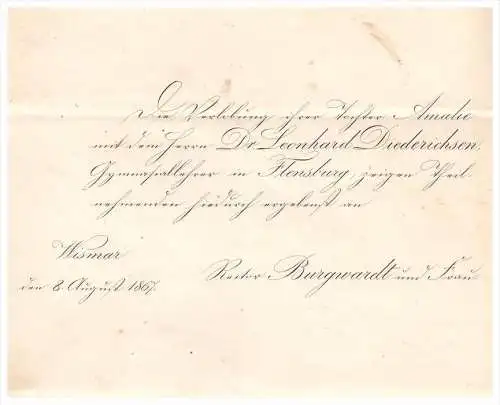 Die Verlobung ihrer Tochter Amalie
mit dem Herrn Dr. Leonhard Diederichsen,
Gymnasiallehrer in Flensburg, zeigen Theil
nehmenden hiedurch ergebenst an
Wismar
den 8. August 1867.
Rector Burgwardt und Frau